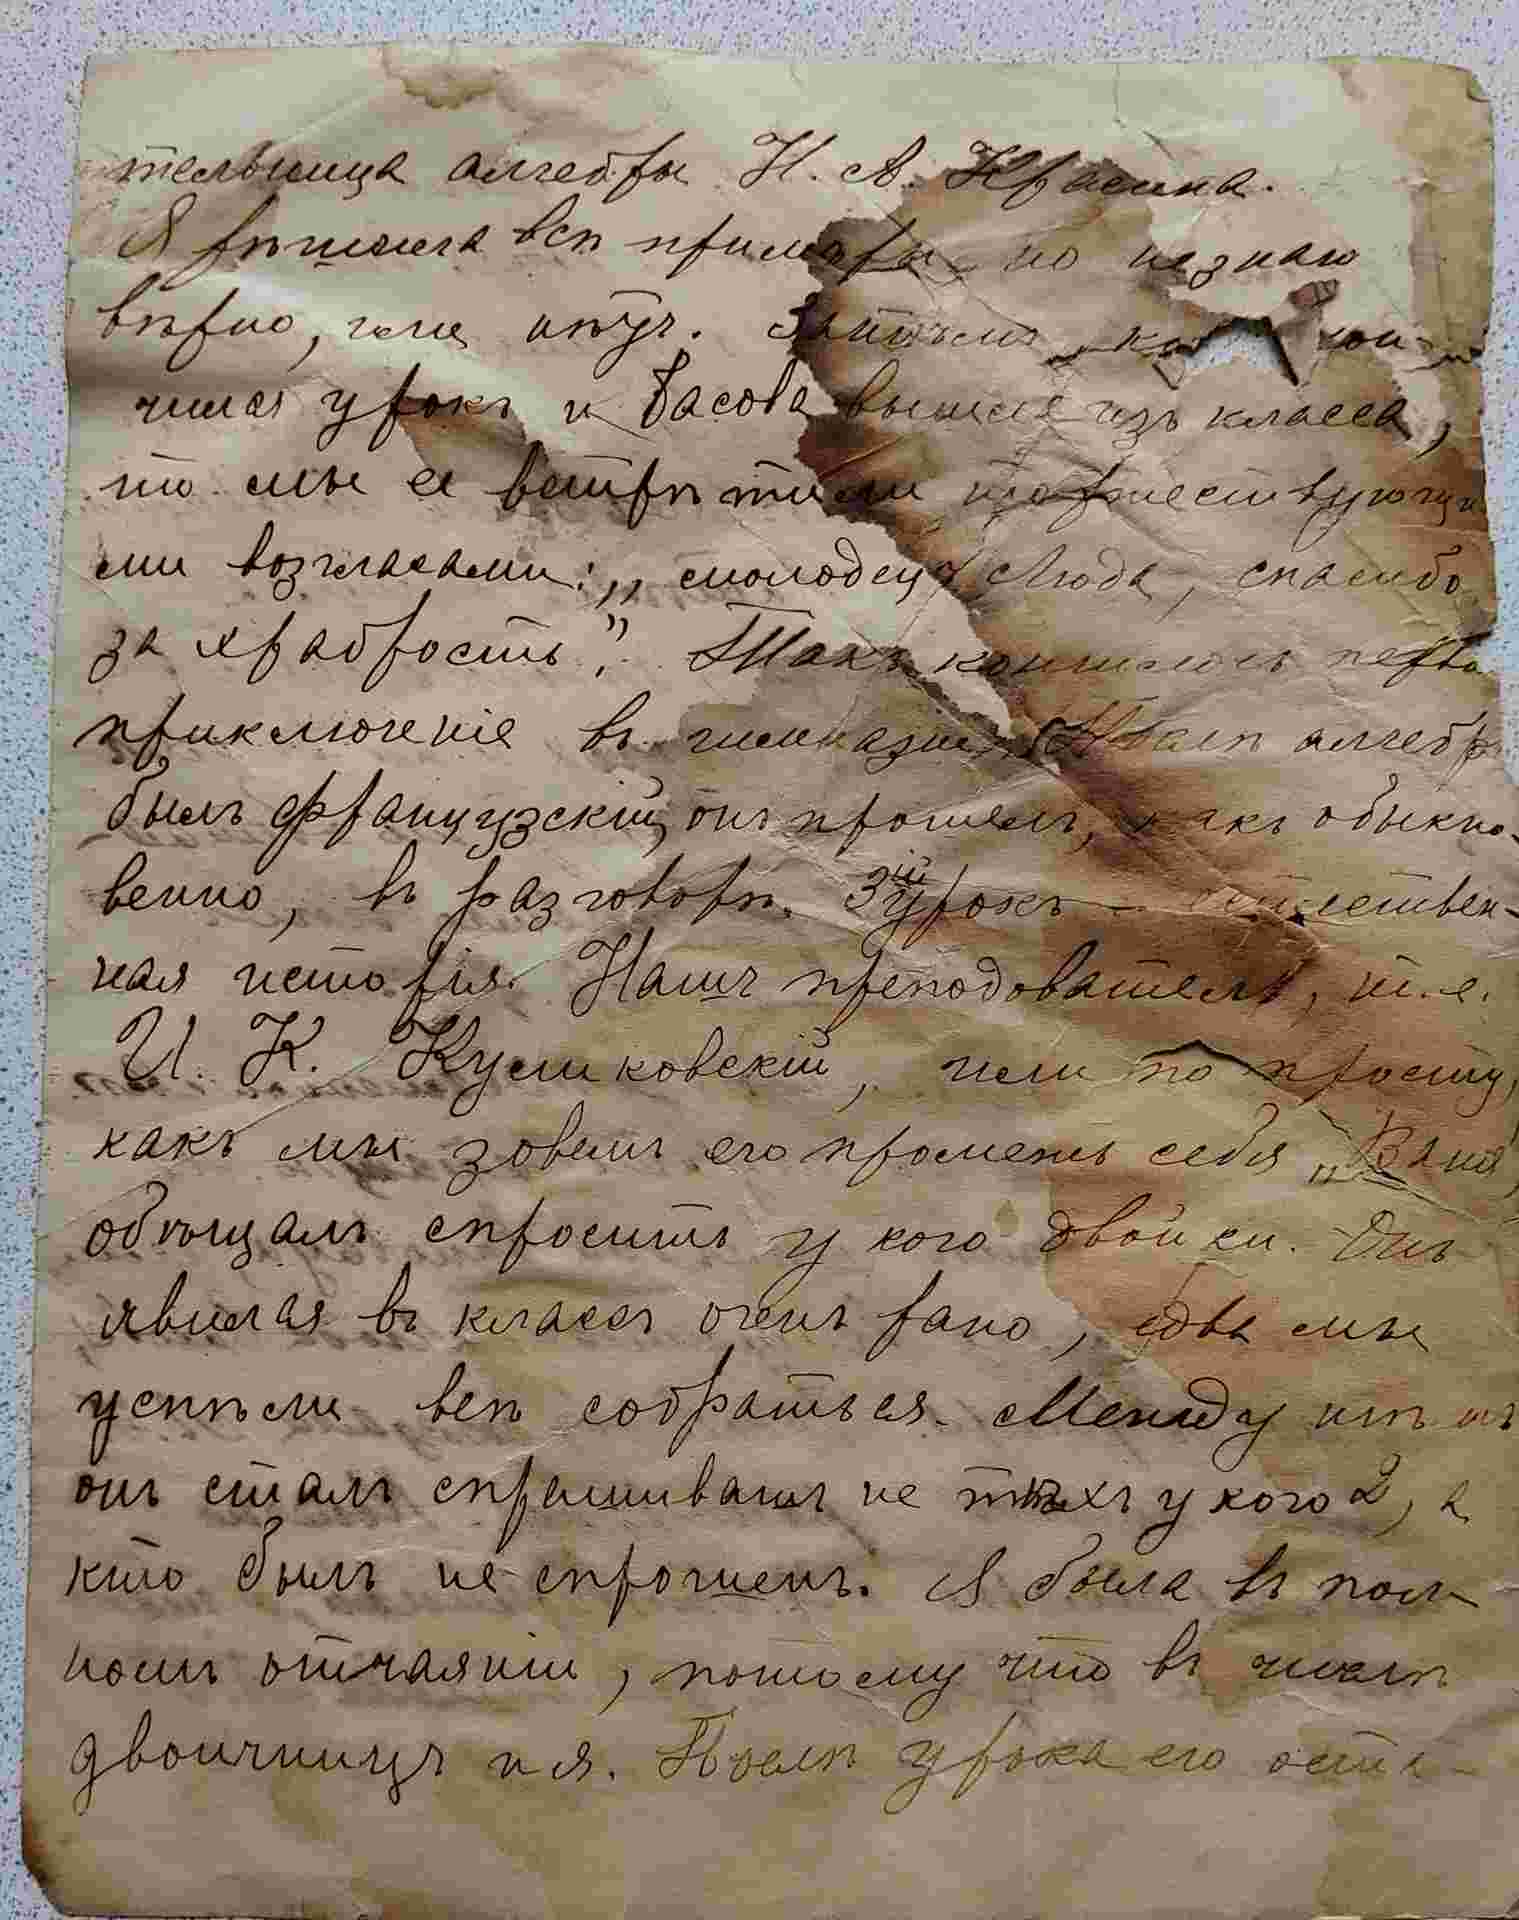 тельница алгебры Н. А. Красина.
Я рѣшила всѣ примѣры, но незнаю
вѣрно, или нѣтъ. Затѣмъ, кон-
чился урокъ и Басова вышла изъ класса,
то мы ее встрѣтили торжествующи
ми возгласами: „молодецъ Люда, спасибо
за храбрость". Такъ кончилось перво
приключеніе въ гимназіи. Послѣ алгебр
былъ французскій, онъ прошелъ, какъ обыкно-
венно, въ разговорѣ. 3ій урокъ – естествен-
ная исторія. Нашъ преподователь, т.е.
И. К. Куликовскій, или по просту,
какъ мы зовемъ его промежъ себя „Ваня,
обѣщалъ спросить у кого двойки. Онъ
явился въ классъ очень рано, едва мы
успѣли всѣ собраться. Между тѣмъ
онъ сталъ спрашивать не тѣхъ у кого 2, а
кто былъ не спрошенъ. Я была въ пол-
номъ отчаяніи, потому что въ числѣ
двоичницъ и я. Послѣ урока его оста-